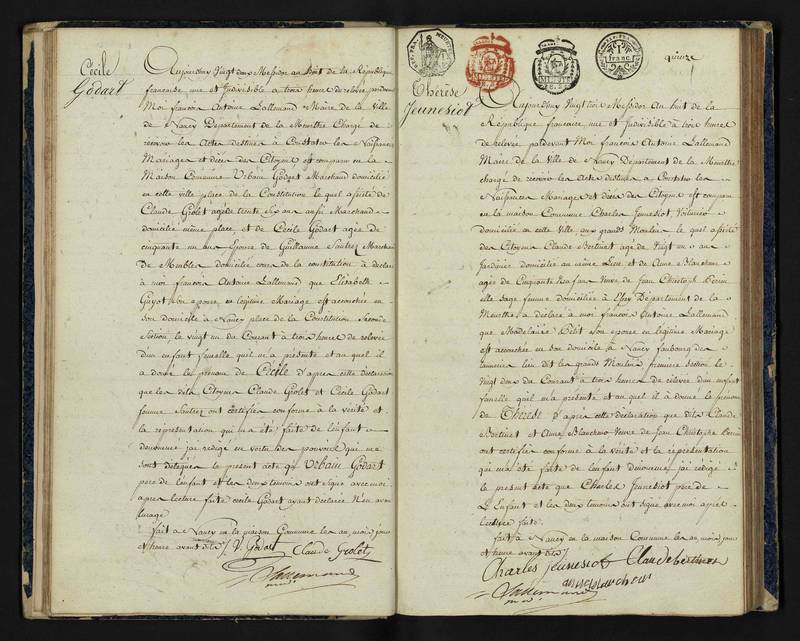 Cécile
Godart
Aujourdhuy Vingt deux Messidor an huit de la République
francaise une et Indivisible a trois heure de relevée pardevant
Moi françois Antoine Lallemand Maire de la Ville
de Nancy Département de la Meurthe Chargé de
recevoir les Actes destinés à Constater les Naissances
Mariages et décès des Citoyens est comparu en la
Maison Commune Urbain Godart Marchand domicilié
en cette ville place de la Constitution le quel assisté de
Claude Grolet agé de trente six ans aussi Marchand
domicilié même place et de Cécile Godart agée de
cinquante un ans épouse de Guillaume Sautrez Marchand
de Meubles domiciliée cour de la constitution à déclaré
à moi francois Antoine Lallemand que Elisabeth
Guyot son epouse en légitime Mariage est accouchée en
son domicile à Nancy place de la Constitution seconde
Section le vingt un du Courant à trois heure de relevée
d'un enfant femelle quel m'a présenté et au quel il
a donné le prénom de Cécile d'après cette déclaration
que les dits Citoyens Claude Grolet et Cécile Godart
femme Sautrez ont certifiée conforme à la vérité et
la représentation qui m'a été faite de l'enfant
denommé j'ai redigé en vertu des pouvoirs qui me
sont délégués le present acte que Urbain Godart
pere de l'enfant et les deux temoins ont signé avec moi
apres lecture faite cecile Godart ayant déclarée n'en avoir
l'usage
fait à Nancy en la maison Commune les an, mois, jour
et heure avant dits / V. Godart Claude Grolet
Lallemand
quinze
1 franc
Thérèse
Jeunesiot
Aujourdhuy Vingt trois Messidor an huit de la
République francaise une et Indivisible à trois heure
de relevée pardevant Moi francois Antoine Lallemand
Maire de la Ville de Nancy Département de la Meurthe
chargé de recevoir les Actes destinés à Constater les
Naissances Mariages et décès des Citoyens est comparu
en la maison Commune Charles Jeunesiot Voiturier
domicilié en cette Ville aux grands Moulins le quel assisté
des Citoyens Claude Bertinet agé de Vingt un ans
Jardinier domicilié au même Lieu et de Anne Blanchon
agée de Cinquante six ans Veuve de Jean Christophe
elle sage femme domiciliée à Département de la
Meurthe à déclaré à moi francois Antoine Lallemand
que Madelaine Petit Son épouse en légitime Mariage
est accouchée en son domicile à Nancy faubourg des
lieu dit les grands Moulins premiere Section le
Vingt deux du Courant à trois heures de relevée d'un enfant
femelle quel m'a présenté et au quel il à donné le prénom
de Thérèse d'après cette déclaration que dits Claude
Bertinet et Anne Blanchon Veuve de Jean Christophe
ont certifiée conforme à la vérité et la représentation
qui m'a été faite de l'enfant denommé j'ai rédigé
le présent acte que Charles Jeunesiot pere de
L'Enfant et les deux temoins ont signé avec moi après
Lecture faite
fait à Nancy en la maison Commune les an mois jour
et heure avant dits
Charles Jeunesiot Claude bertinet
anne blanchon
Lallemand